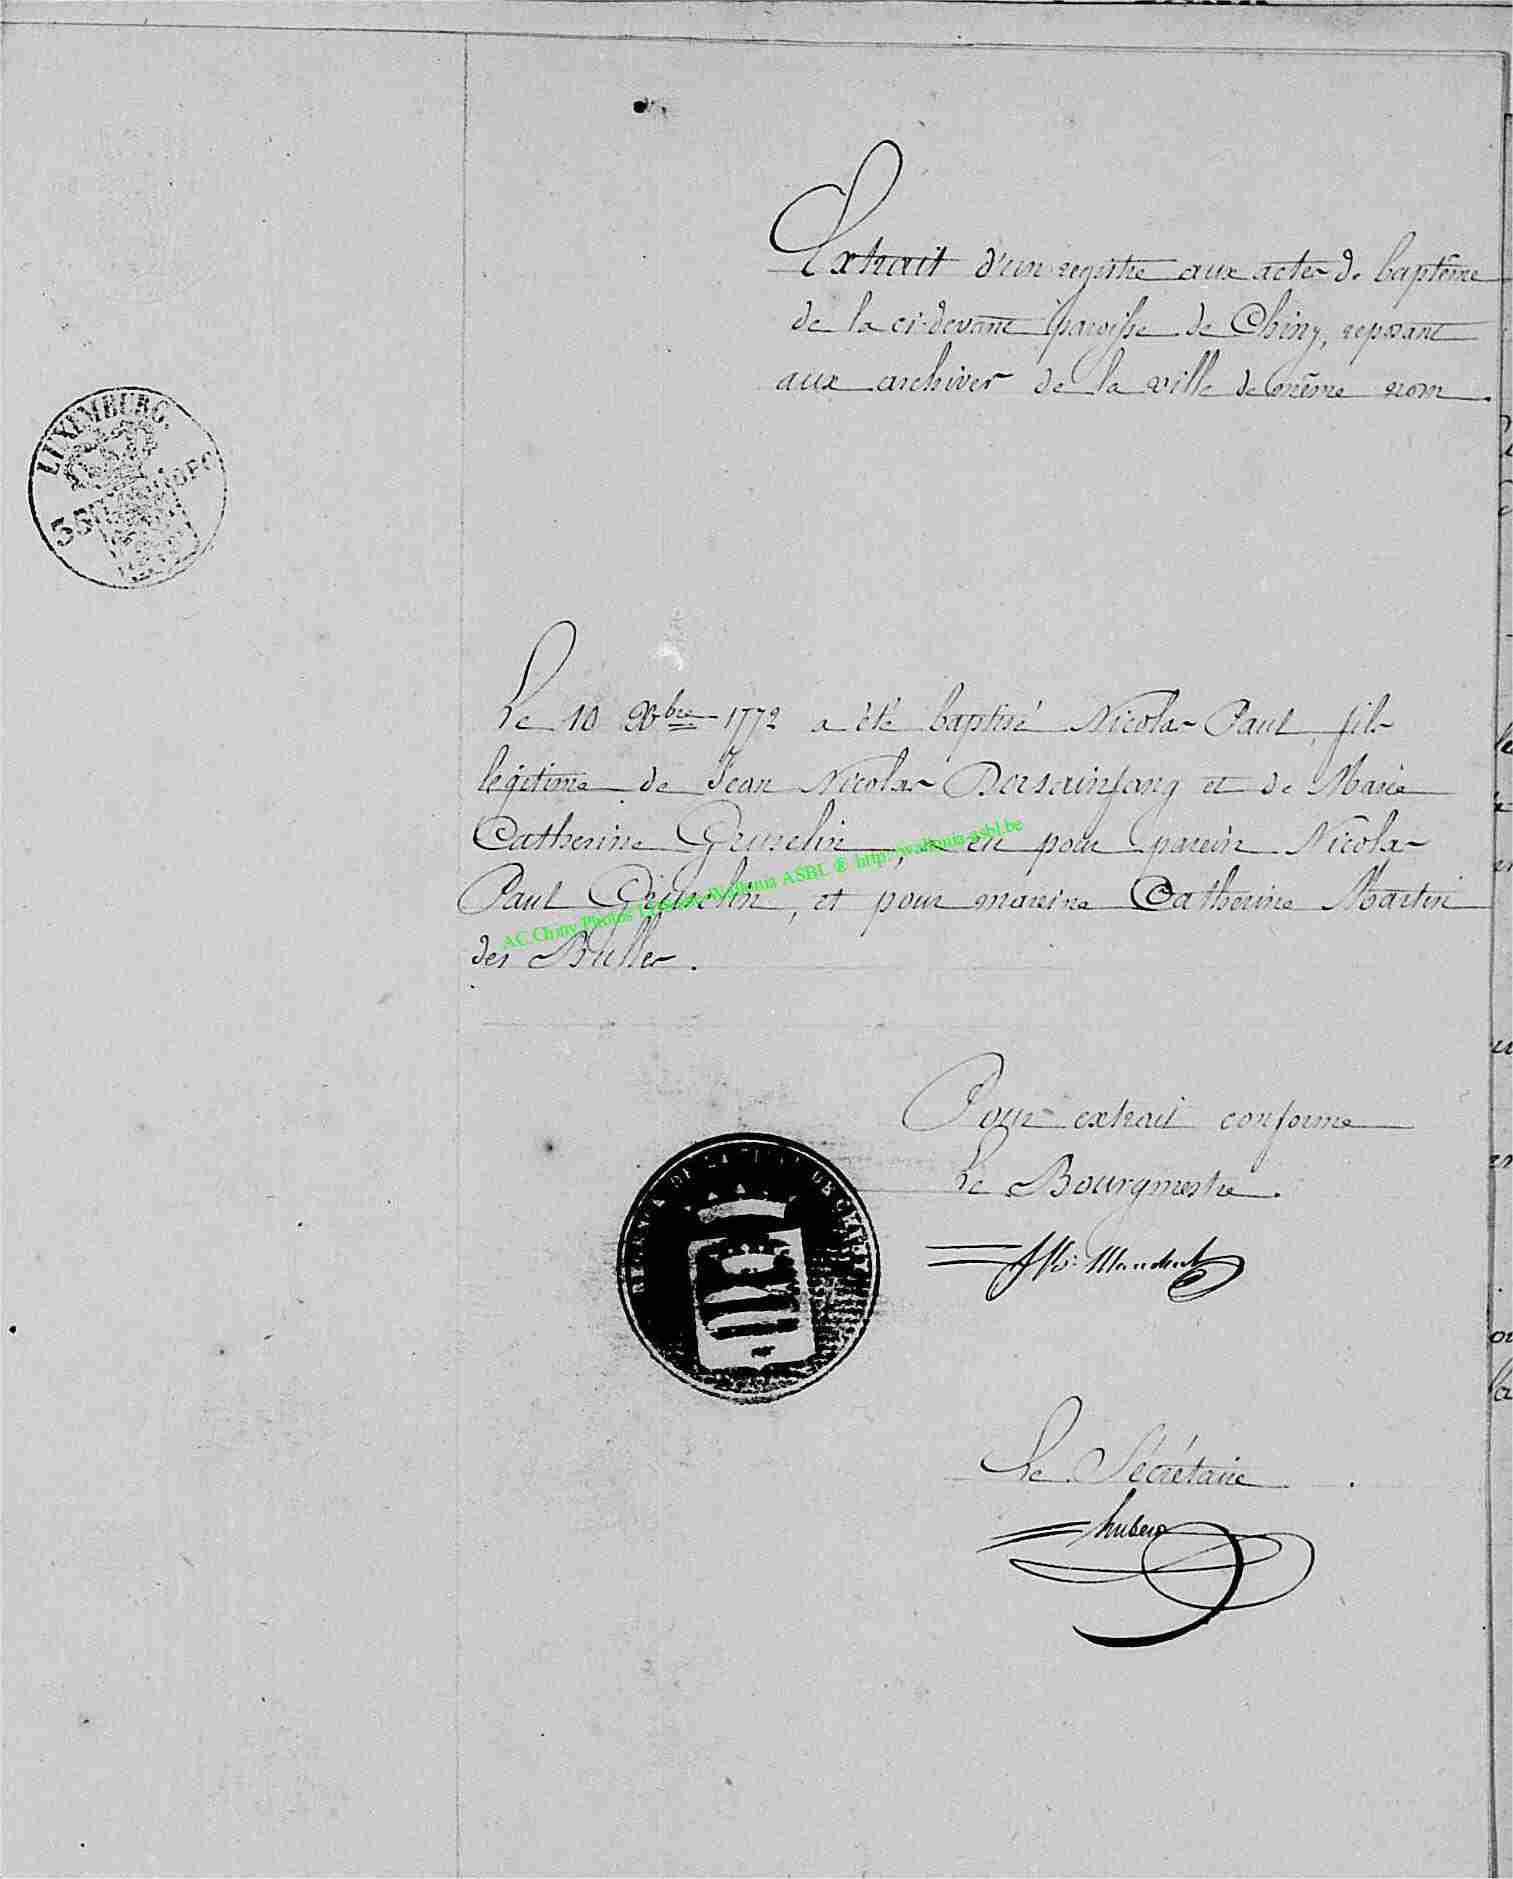 Extrait d'un registre aux actes de baptême
de la ci-devant paroisse de Chiny, reposant
aux archives de la ville de même nom.
LUXEMBURG.
Le 10 Xbre 1772 a été baptisé Nicolas Paul, fils
légitime de Jean Nicolas Dersainfang et de Marie
Catherine Gruselin, eu pour parein Nicolas
Paul Gruselin, et pour mareine Catherine Martin
des Bulles.
AC.Chiny Photos Wallonia ASBL @ http://wallonia-asbl.be
Pour extrait conforme
Le Bourgmestre.
Le Secrétaire